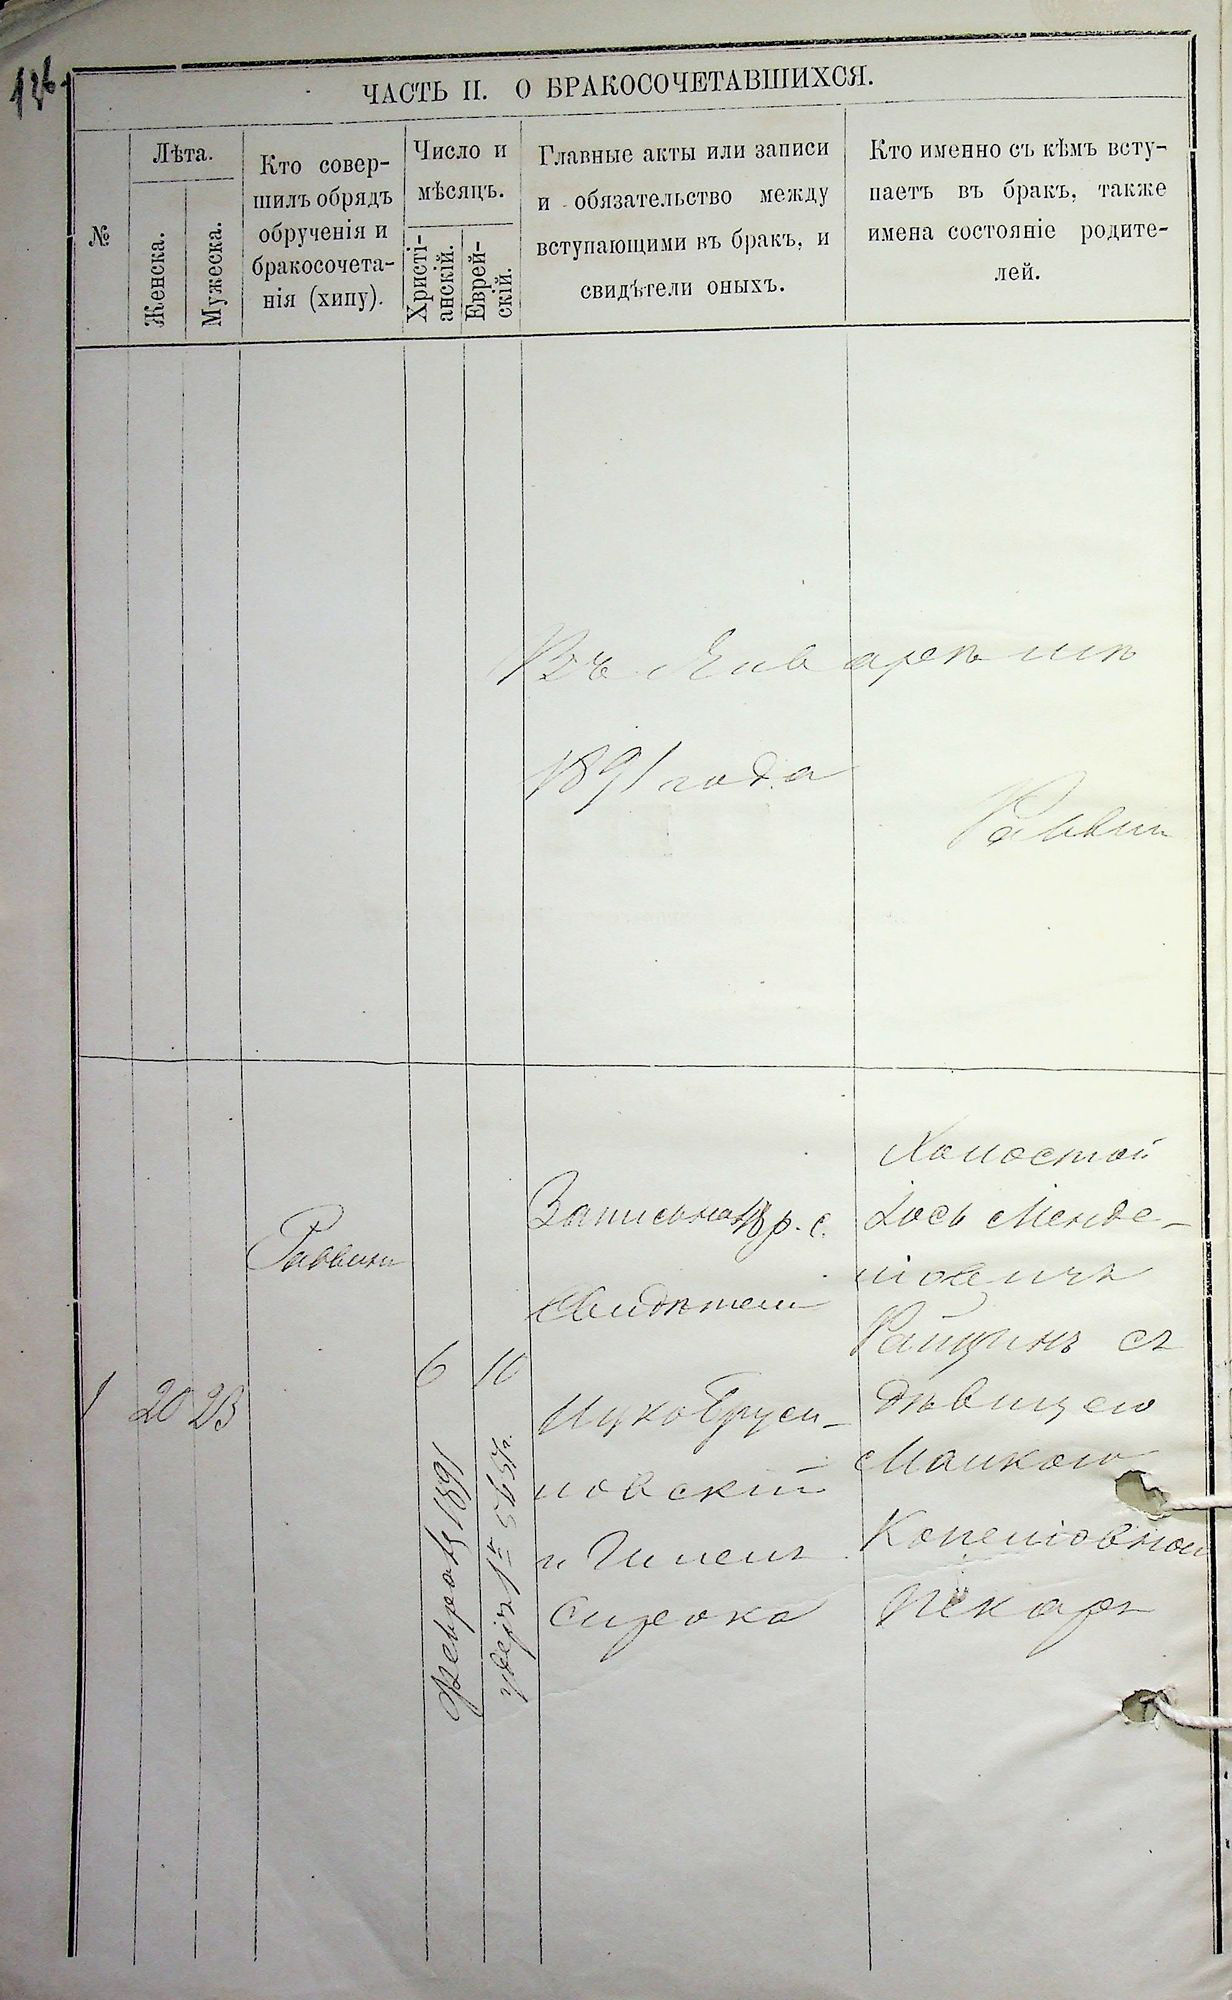 126.
ЧАСТЬ II. О БРАКОСОЧЕТАВШИХСЯ.
№
Лѣта.
Женска.
Мужеска.
Кто совер-
шилъ обрядъ
обрученія и
бракосочета-
нія (хипу).
Число и
мѣсяцъ.
Христі-
анскій.
Еврей-
скій.
Главные акты или записи
и обязательство между
вступающими въ бракъ, и
свидѣтели оныхъ.
Кто именно съ кѣмъ всту-
паетъ въ бракъ, также
имена состояніе родите-
лей.
Въ Январѣ
1891 года
Раввин
1
20
23
Раввин
6
Февраля 1891
10
Запись на 48 р. с.
Свидѣтели
и
Холостой
Іось Менде-
левичъ
съ
дѣвицею
Малкою
Копеловной
Пекаръ